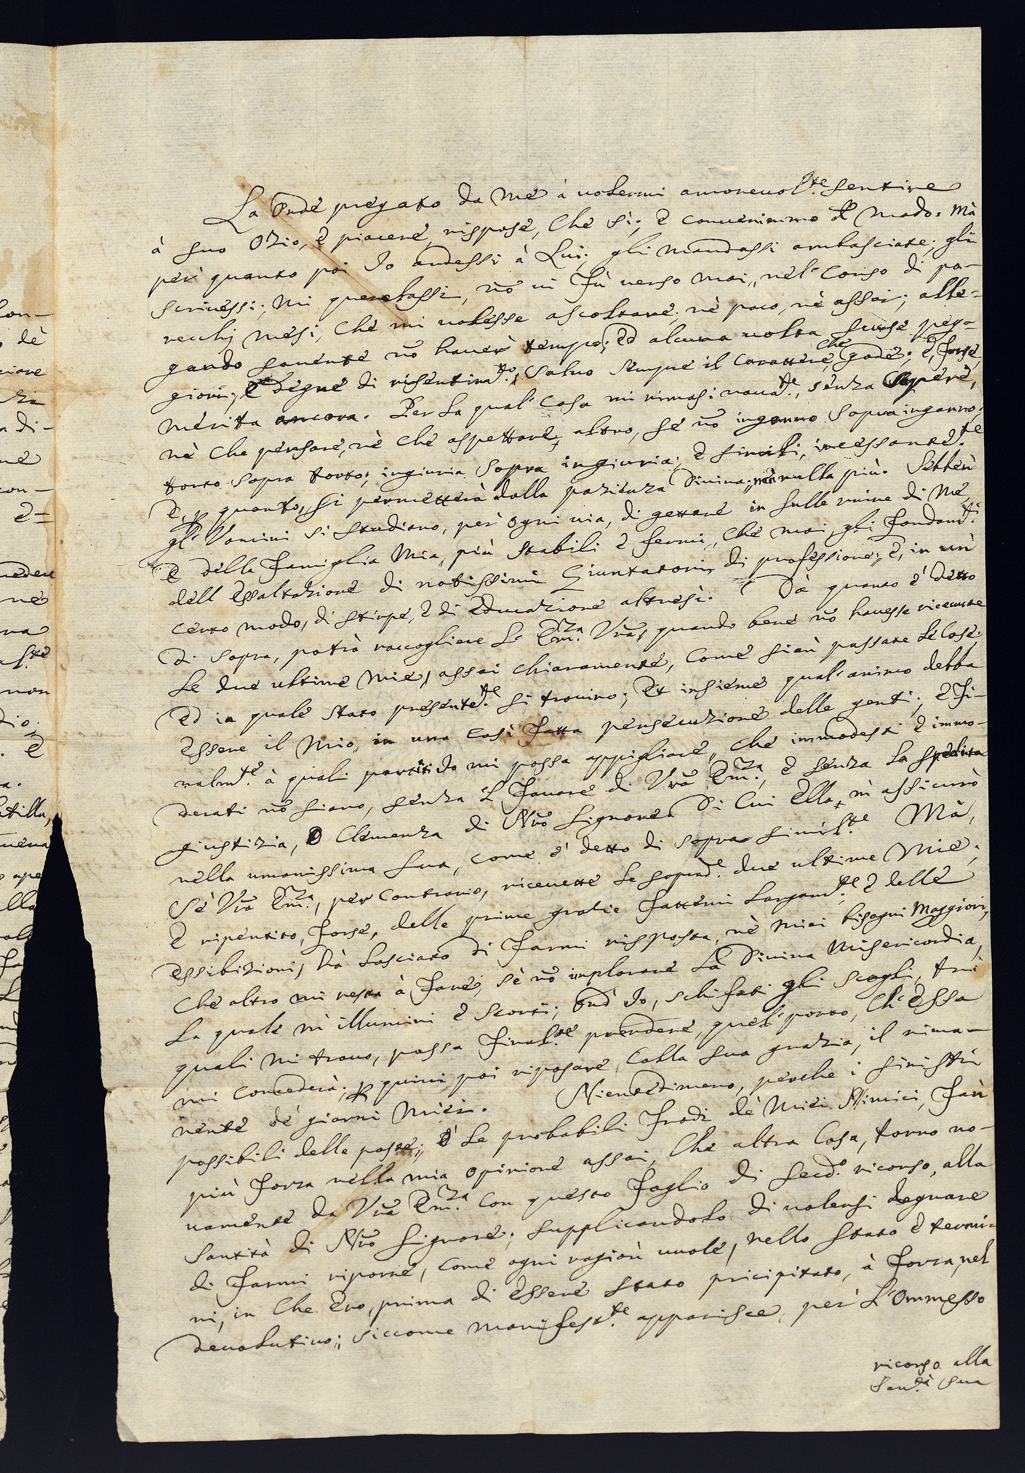 La Onde pregato da me à volermi amorevolte sentire
à suo Ozio, è piacere, rispose, Che sì; è convenimmo del modo. Mà
per quanto poi Io andassi à Lui; gli mandassi ambasciate; gli
scrivessi; mi querelassi, nõ vi Fù verso mai, nel Corso di pa-
recchj mesi, Che mi volesse ascoltare; nè poco, nè assai; alle-
gando sovente nõ haver tempo; ed alcuna volta scuse peg-
giori; è degne di risentimto, salvo sempre il Carattere, che gode; è, forse
merita ancora. Per La qual Cosa mi rimasi senza Sapere,
nè Che pensare, nè Che aspettare, altro, se nõ inganno sopra inganno;
torto sopra torto; ingiuria sopra ingiuria; è simili, incessantete
è, p quanto, si permetterà dalla pazienza Divina; mà nulla più.
gl' Uomini si studiano, per ogni via, di gettare in sulle ruine di Me,
è della Famiglia Mia, più stabili è fermi, Che mai, gli Fondamti
dell'Essaltazione di notissimi Giuntatori, di professione; è, in un
certo modo, di stirpe, è di Educazione altresì. Da quanto è detto
di sopra, potrà raccogliere L' Emza Vrã, quando bene nõ havesse ricevute
Le due ultime Mie, assai Chiaramente, Come siaù passate Le Cose:
ed in quale stato presente si trovino; Et insieme qual' animo debba
essere il Mio, in una Così Fatta persecuzione delle genti; è Fi-
nalmte à quali partiti Io mi possa appigliare, Che immodesti è immo-
derati nõ siano, senza 'l Favore di Vrã Emza, è senza La spedita
giustizia, ò Clemenza di Nrõ Signore: Di Cui Ella m'assicurò
nella umanissima sua, Come è detto di sopra Mà,
Sè Vrã Emza, per Contrario, ricevette Le sopradte due ultime Mie;
è ripentito, Forse, delle prime grazie Fattemi Largamte è delle
essibizioni, hà Lasciato di Farmi risposta, nè miei bisogni Maggiori,
Che altro mi resta à Fare, sè nõ implorare La Divina Misericordia,
La quale m'illumini è scorti; Ond' Io, schifati gli scogli, trà
quali mi trovo, possa Finalte prendere, quel porto, Ch' Essa
mi Concederà; p quivi poi riposare, Colla sua grazia, il rima-
nente de' giorni Miei. Nientedimeno, perche i sinistri
possibili delle poste; è Le probabili Frodi de' Miei Nimici, Faù
più Forza nella mia opinione assai, Che altra Cosa, torno no-
vamente da Vrã Emza Con questo Foglio di Secdo ricorso, alla
Santità di Nrõ Signore; supplicandolo di volersi degnare
di Farmi riporre, Come ogni ragioù vuole, nello stato è termi-
ni, in Che Ero, prima di essere stato pricipitato, à Forza, nel
devolutivo; siccome manifestte apparisce, per L'Ommesso
ricorso alla
Santà Sua